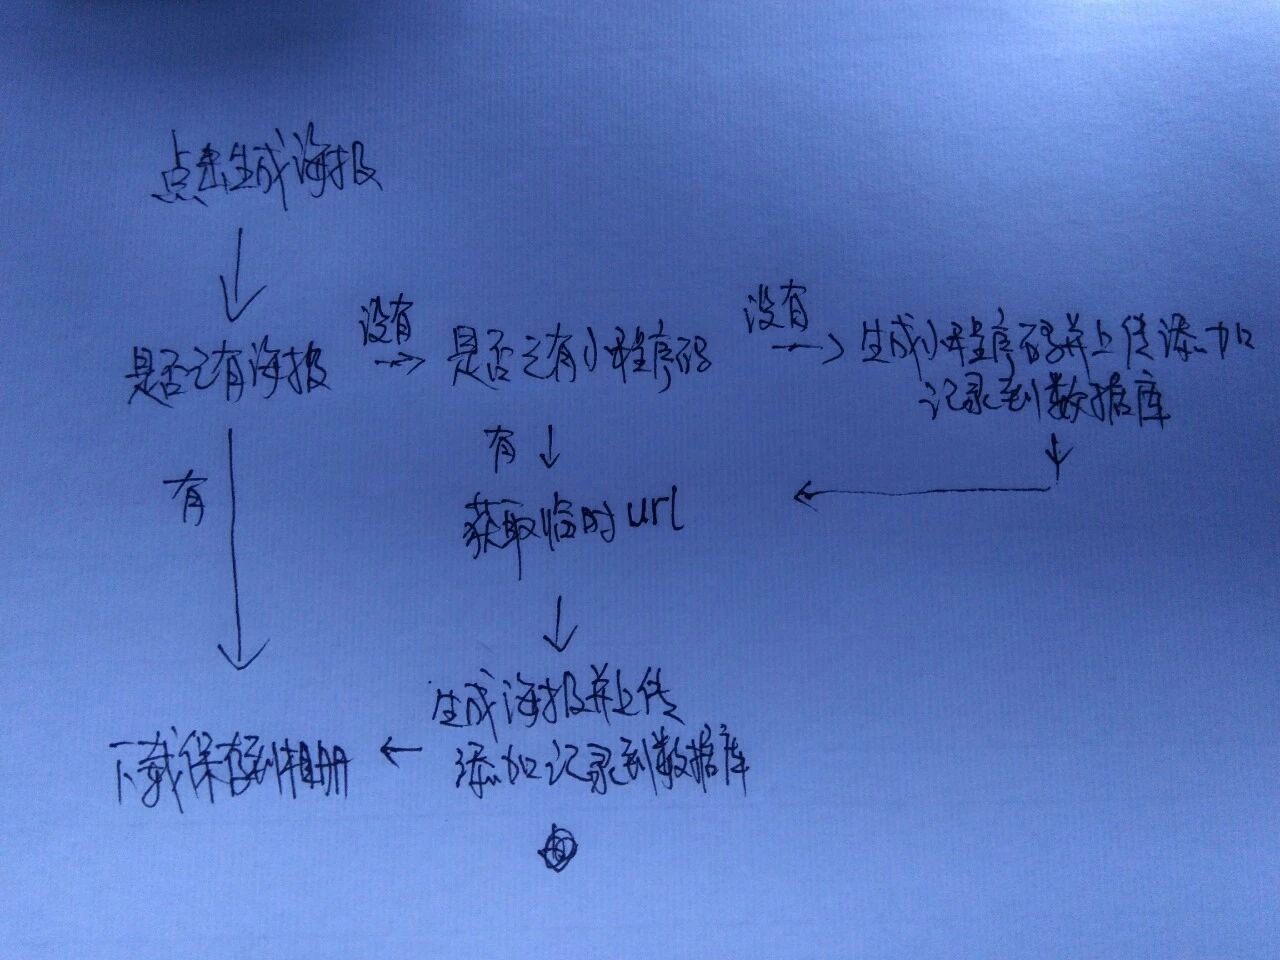 点击生成海报
没有
没有
是否已有海报
是否已有小程序码
生成小程序码并上传添加
记录到数据库
有
有
获取临时url
生成海报并上传
添加记录到数据库
下载保存到相册